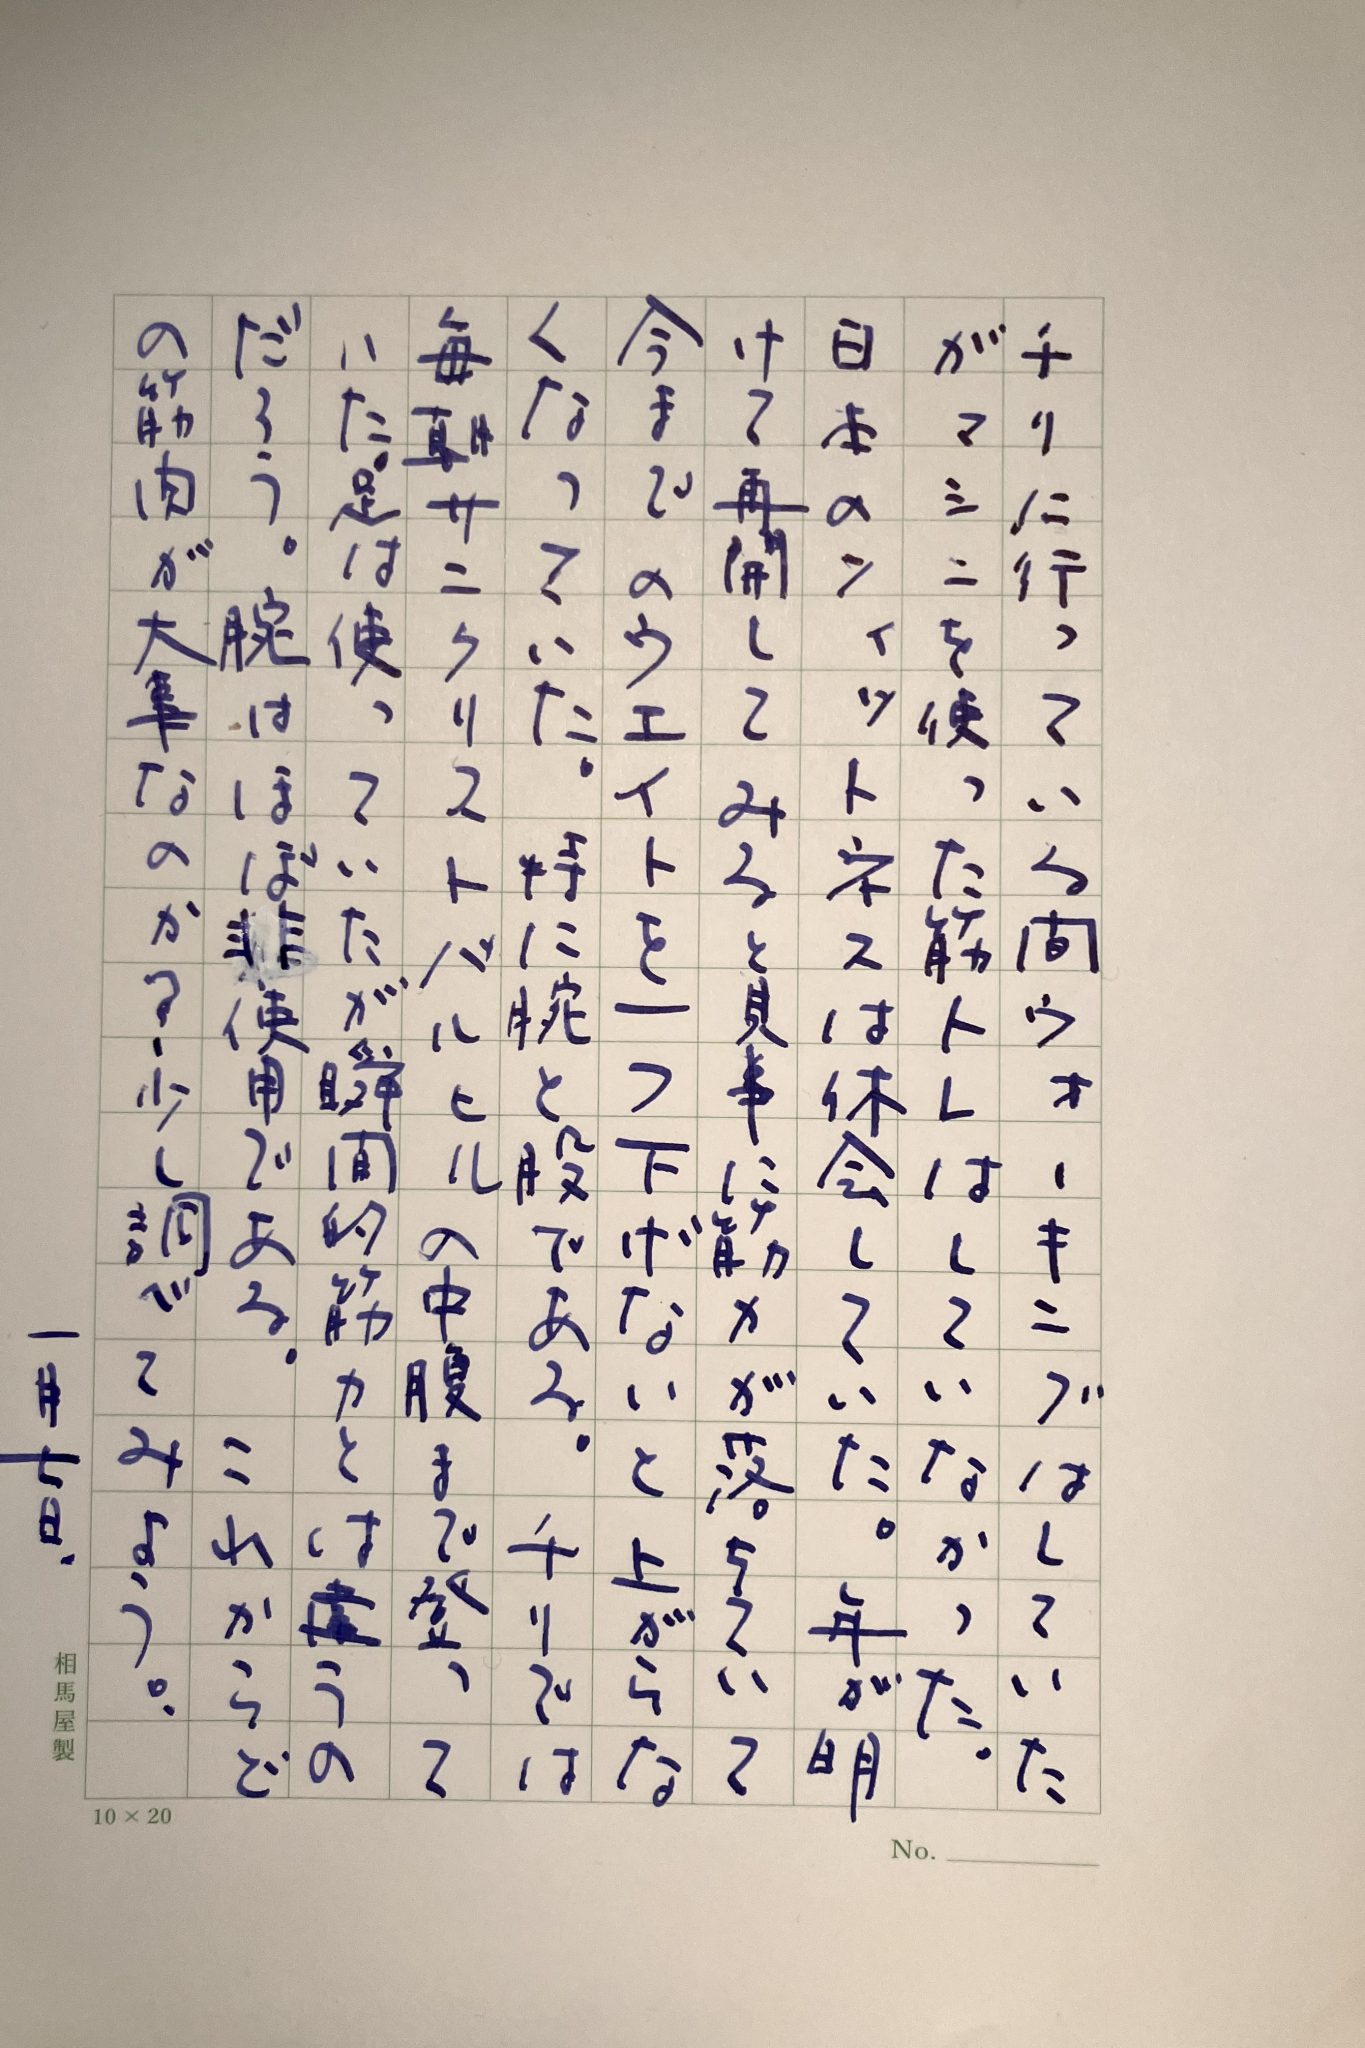 チリに行っている間ウオーキングはしていた
がマシンを使った筋トレはしていなかった。
日本のフィットネスは休会していた。年が明
けて再開してみると見事に筋力が落ちていて
今までのウエイトを一つ下げないと上がらな
くなっていた。特に腕と股である。チリでは
毎朝サンクリストバルヒルの中腹まで登って
いた。足は使っていたが瞬間的筋力とは違うの
だろう。腕はほぼ非使用である。これからど
の筋肉が大事なのかも少し調べてみよう。
相馬屋製
10×20
No.